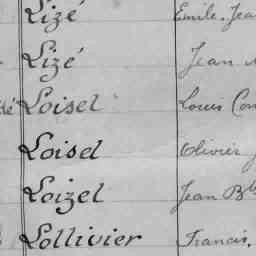 Lizé Emile, Jea
Lizé Jean
Loisel Louis Con
Loisel Olivier J
Loizel Jean Bte
Lollivier Francis,